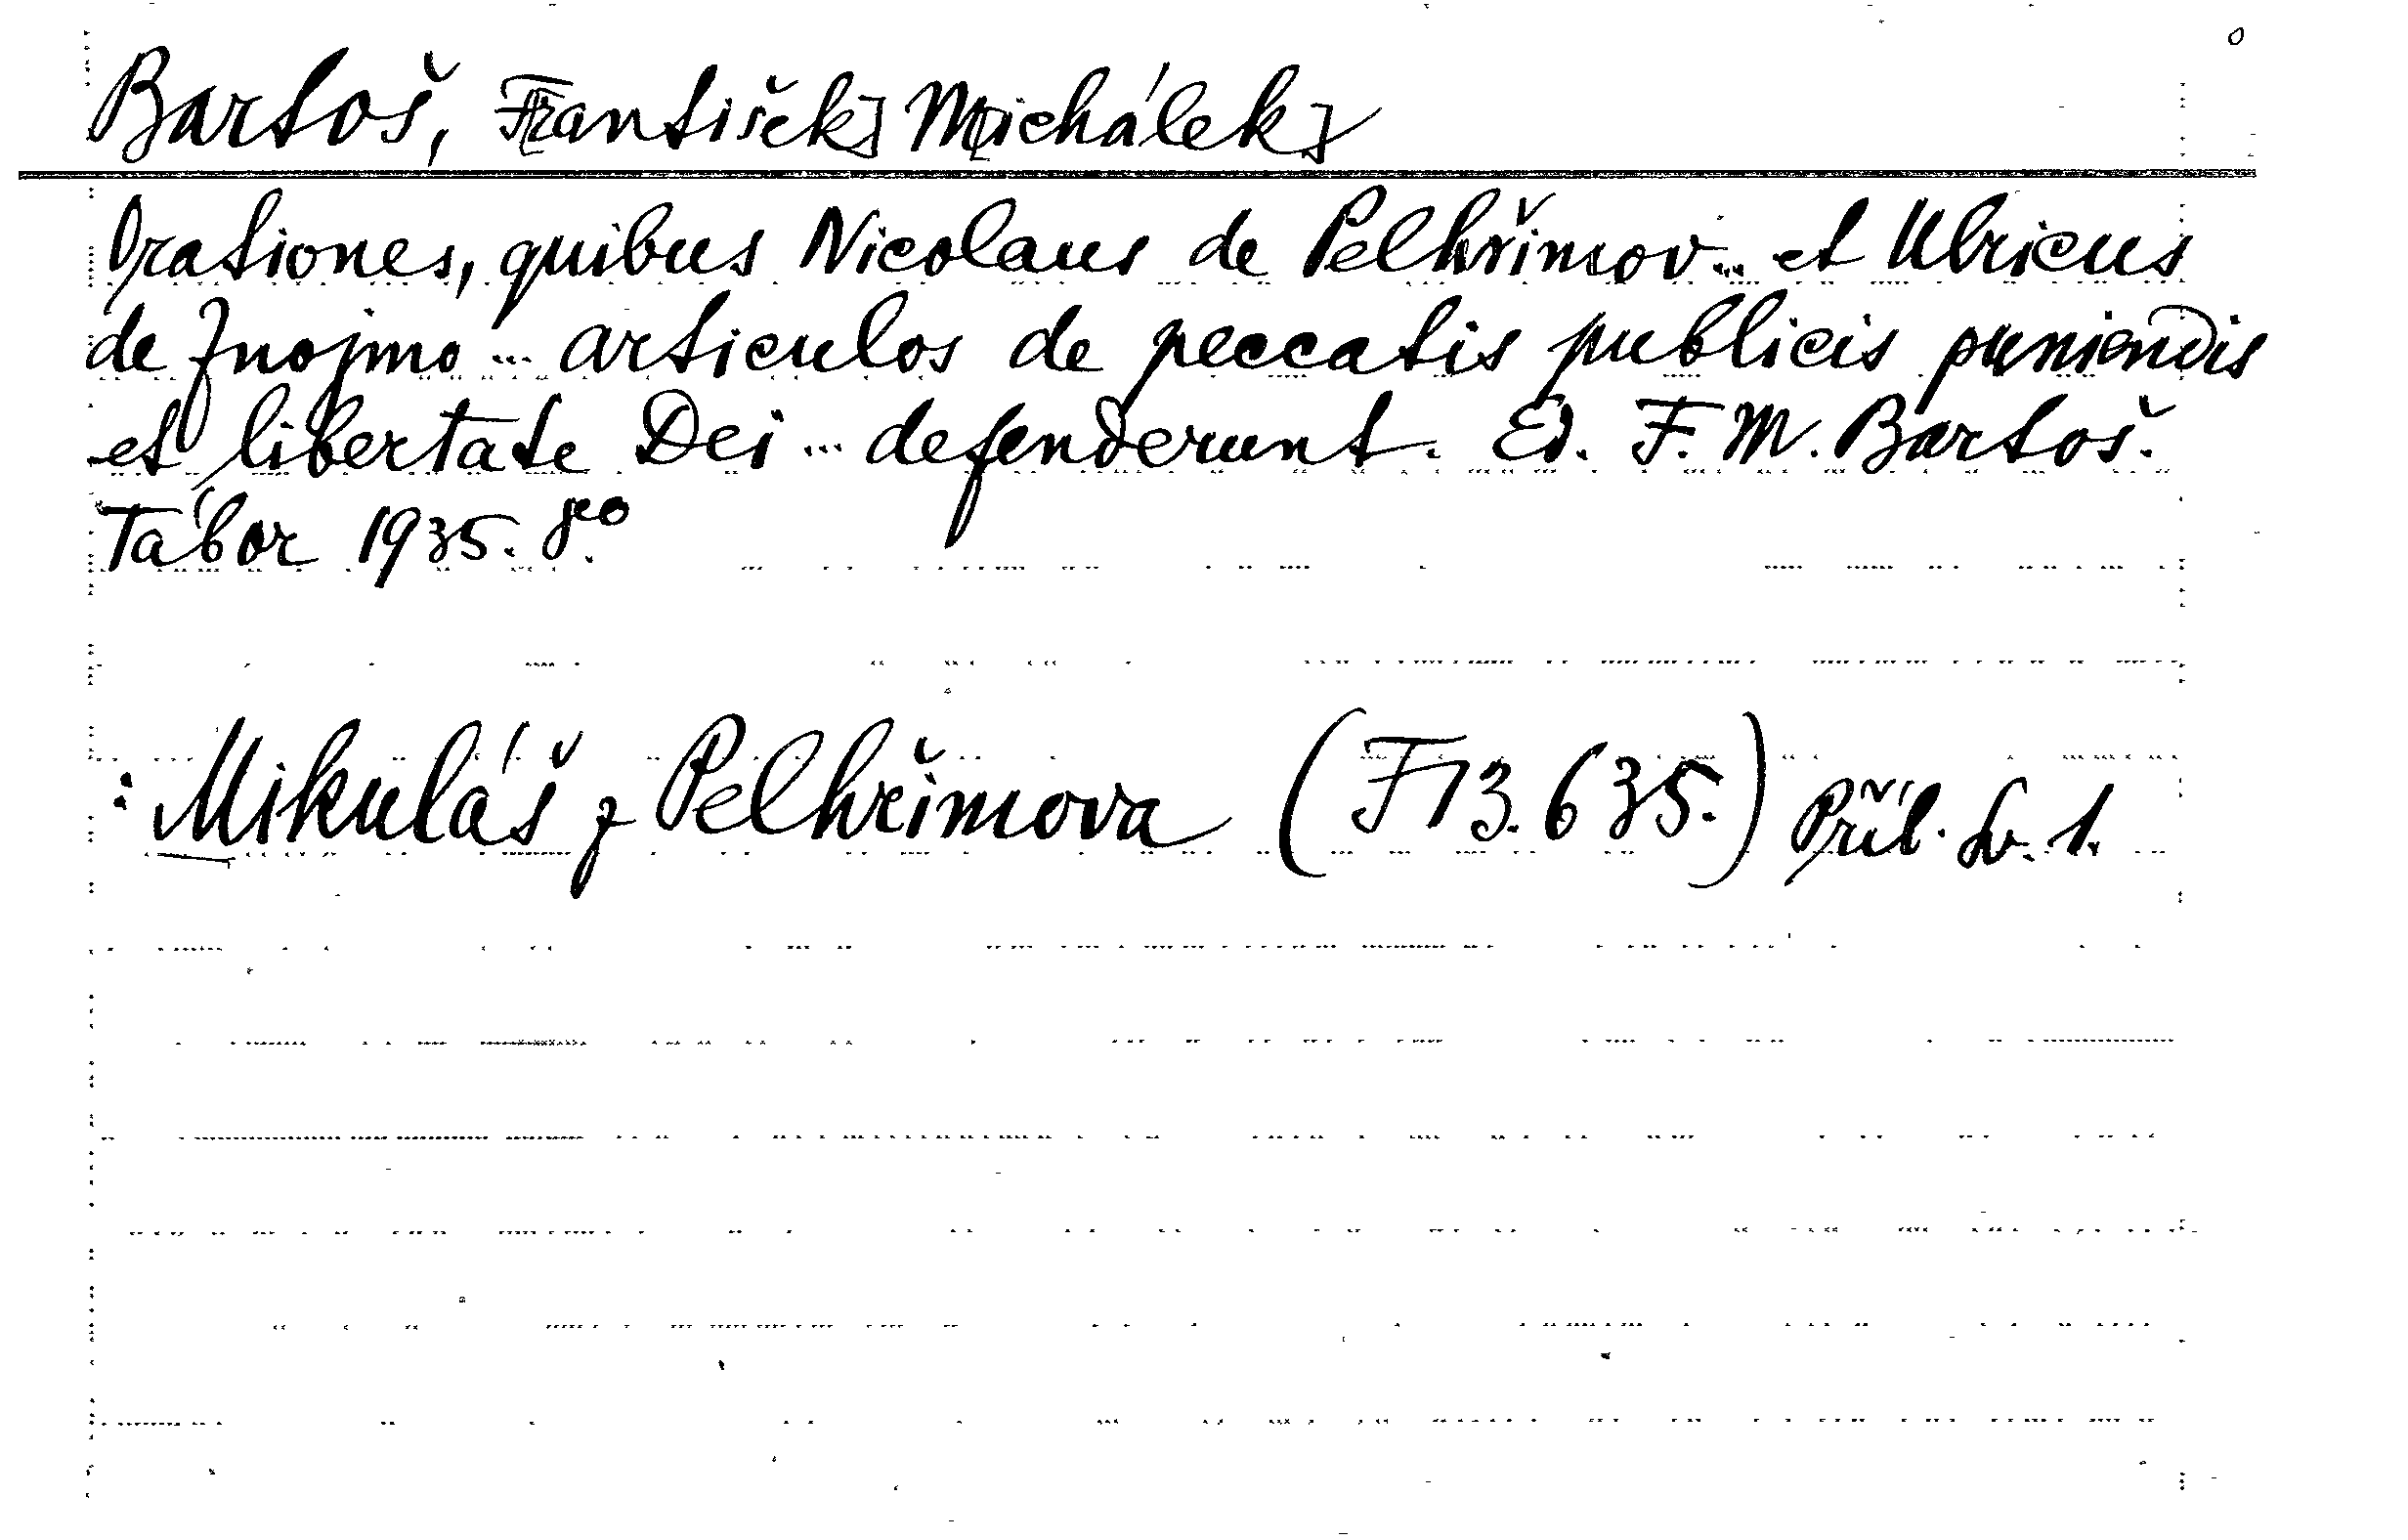 Bartoš, F[rantišek] M[ichálek]
Orationes, quibus Nicolaus de Pelhřimov... et Ulricus
de Znojmo... articulos de peccatis publicis puniendis
et libertate Dei... defenderunt. Ed. F. M. Bartoš.
Tábor 1935. 8.vo
: Mikuláš z Pelhřimova (F 13.635.) Příl. sv. 1.